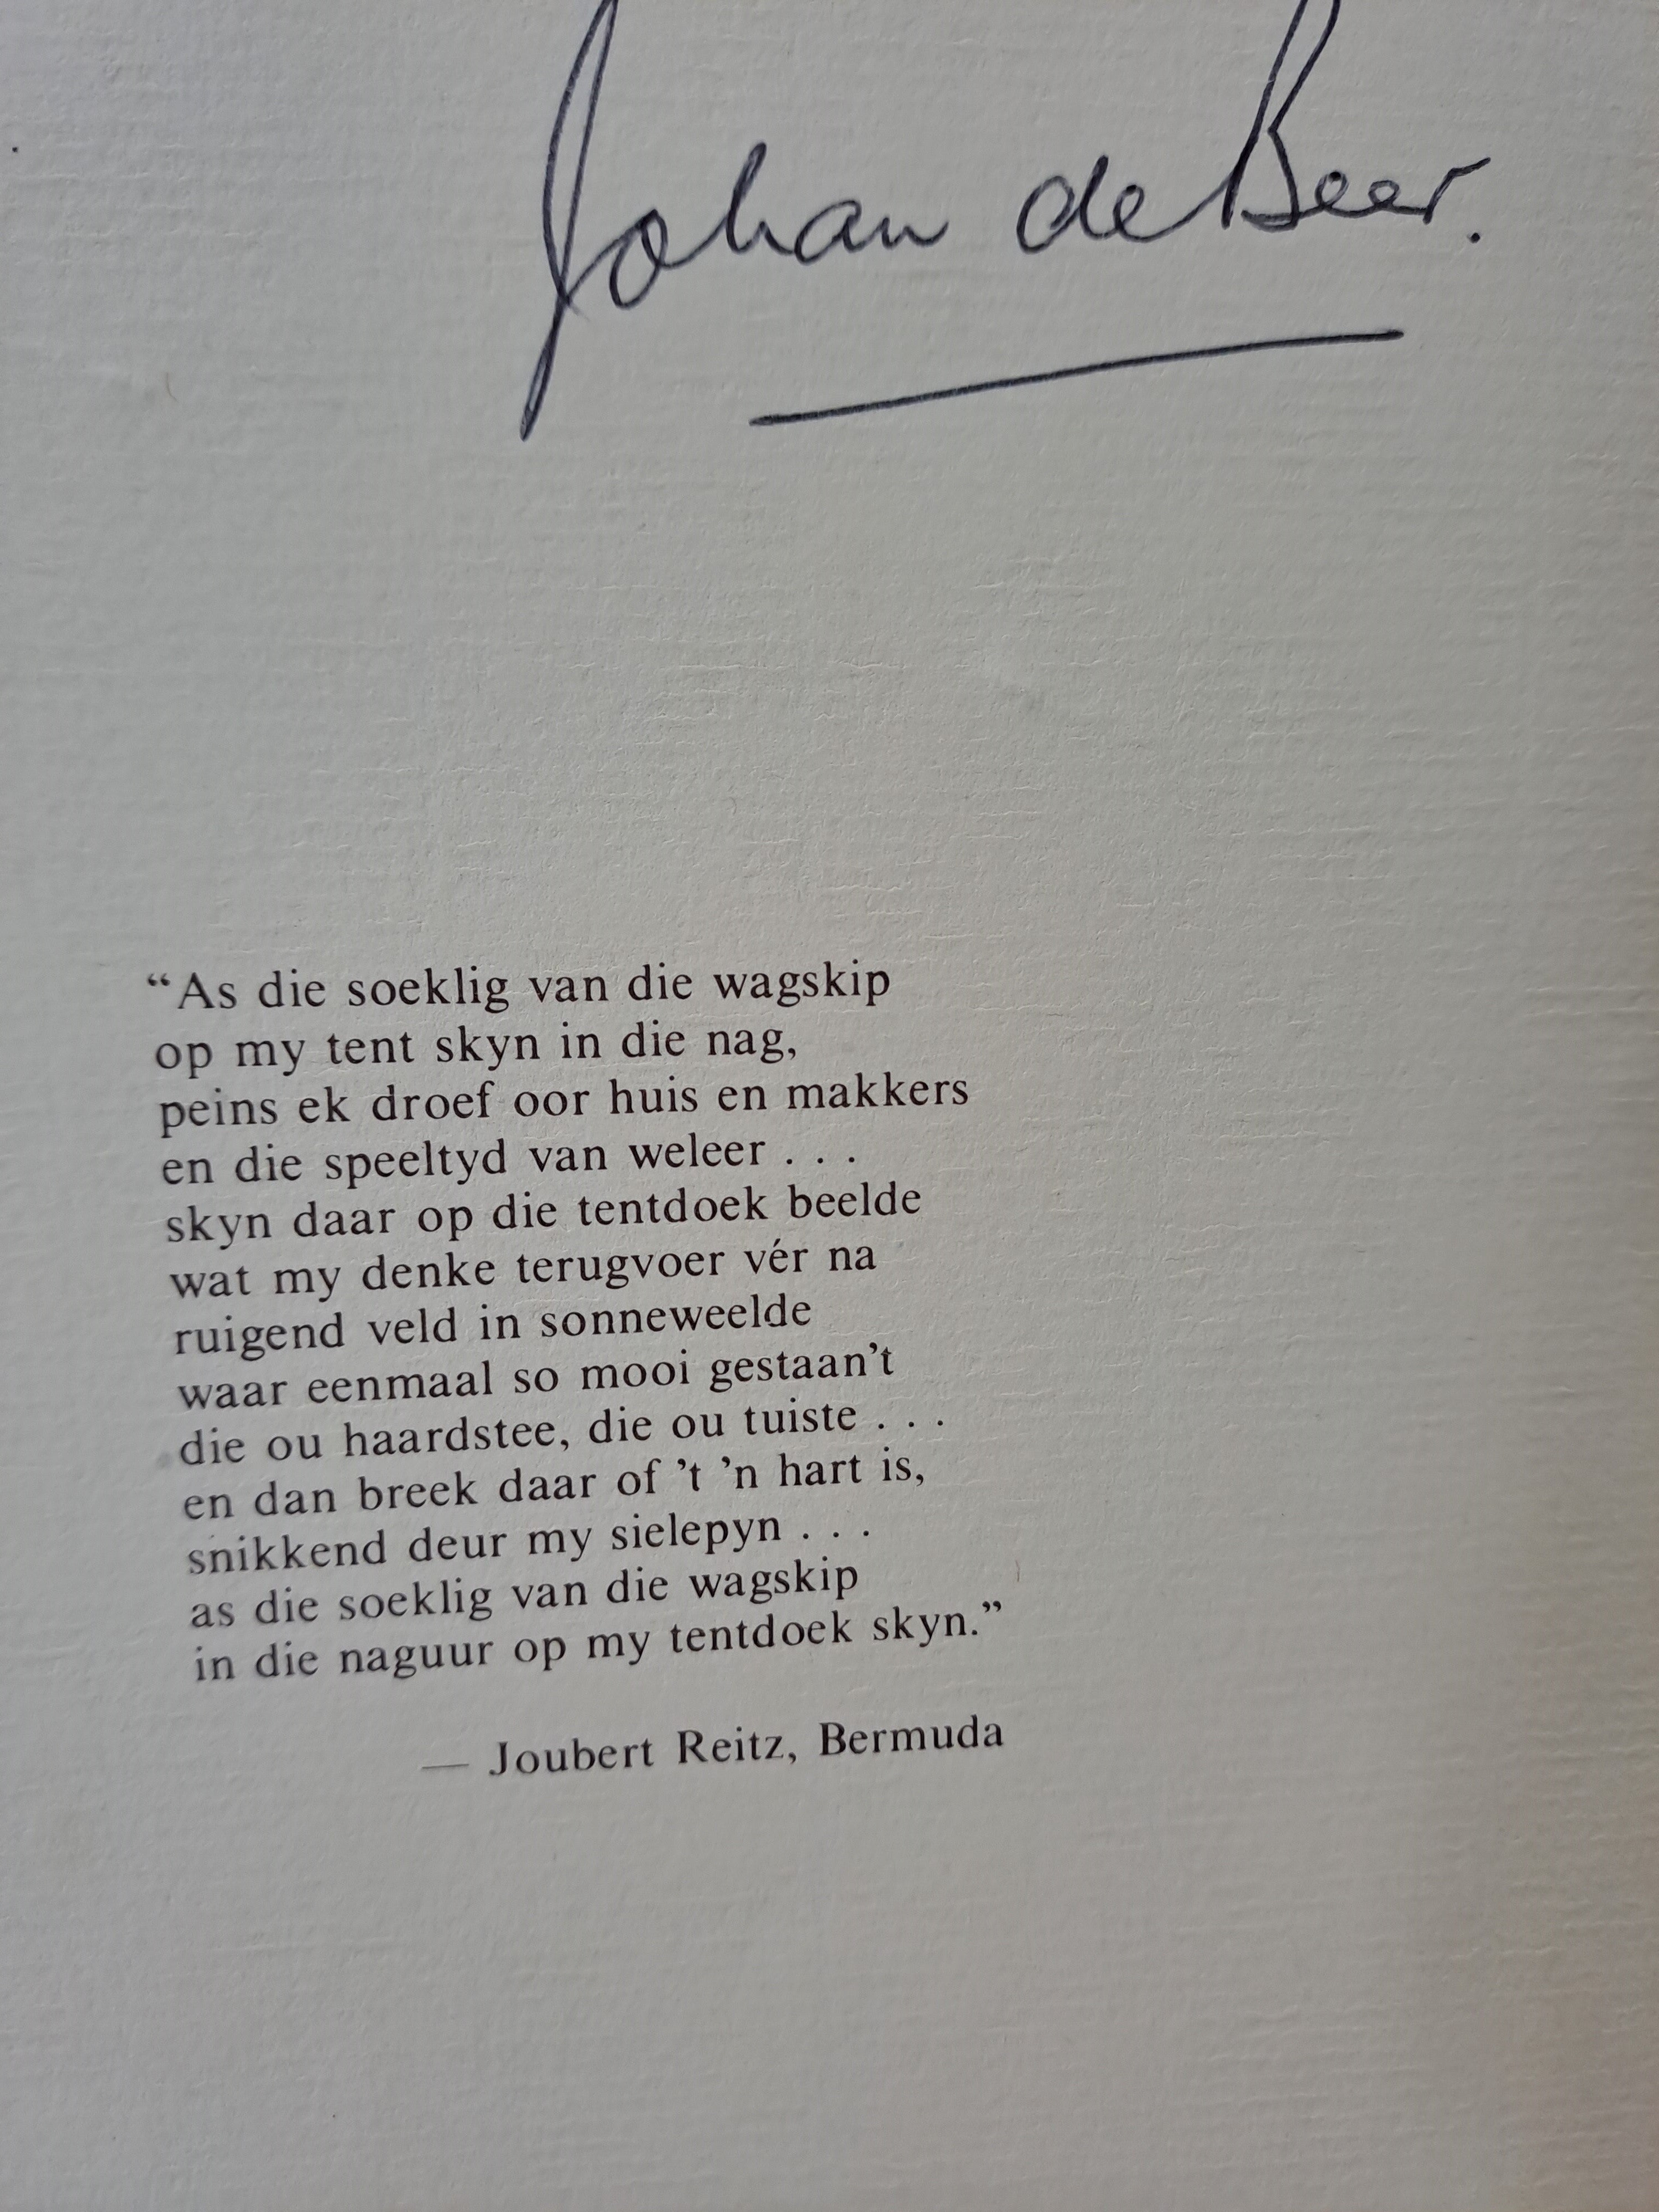 Johan de Beer.
“As die soeklig van die wagskip
op my tent skyn in die nag,
peins ek droef oor huis en makkers
en die speeltyd van weleer . . .
skyn daar op die tentdoek beelde
wat my denke terugvoer vér na
ruigend veld in sonneweelde
waar eenmaal so mooi gestaan’t
die ou haardstee, die ou tuiste . . .
en dan breek daar of ’t ’n hart is,
snikkend deur my sielepyn . . .
as die soeklig van die wagskip
in die naguur op my tentdoek skyn.”
— Joubert Reitz, Bermuda